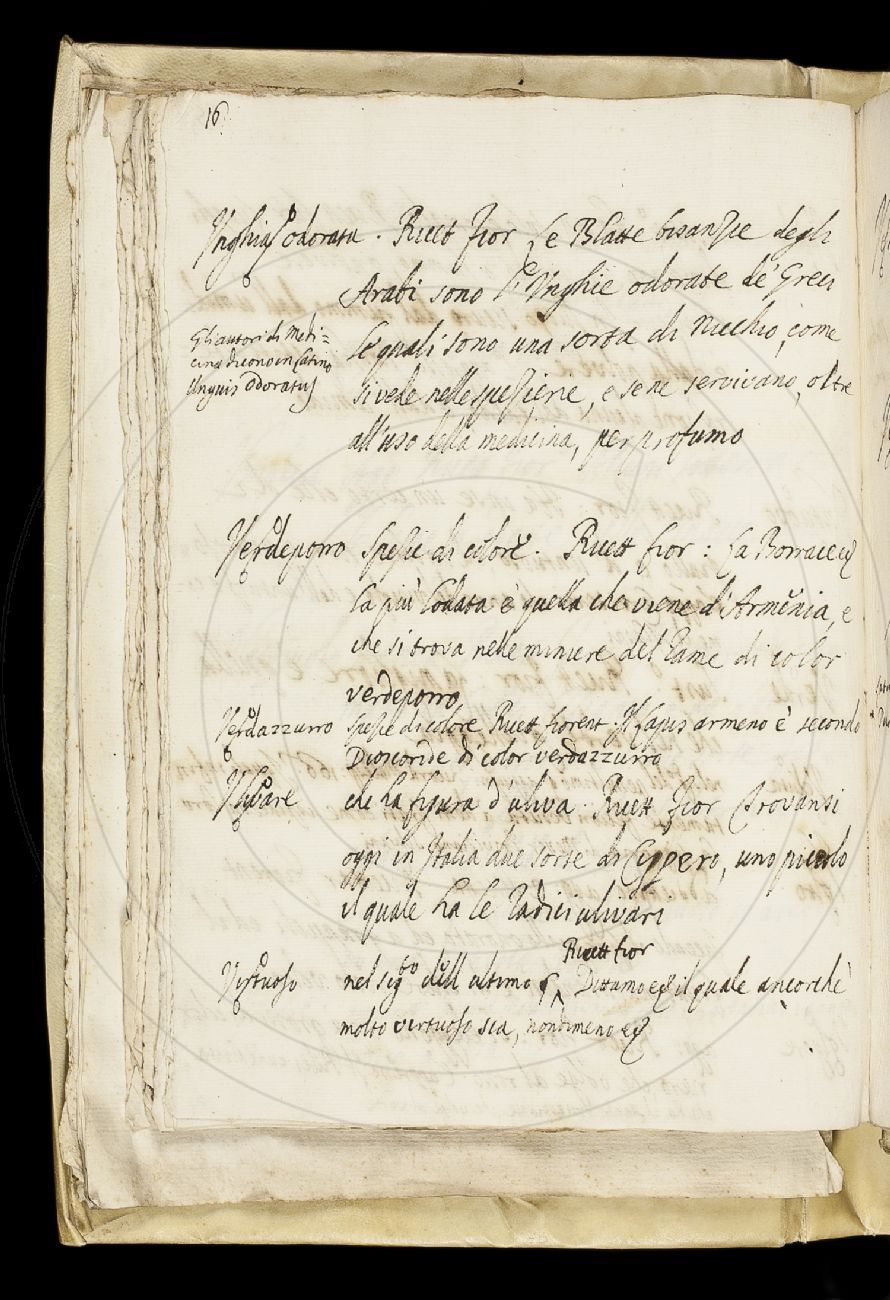 16
Unghia odorata. Ricett fior Le Blatte bisanzie degli
Arabi sono l'Unghie odorate de' Greci
Gli autori di Medi=
cina dicono in Latino
Unguis odoratus
le quali sono una sorta di nicchio, come
si vede nelle spezierie, e se ne servivano, oltre
all'uso della medicina, per profumo
Verdeporro spezie di colore. Ricett fior: La Borrace
la più lodata è quella che viene d'Armenia, e
che si trova nelle miniere del Rame di color
verdeporro
Verdazzurro spezie di colore Ricett fiorent. Il Lapis armeno è secondo
Dioscoride di color verdazzurro
Ulivare che ha figura d'uliva. Ricett fior Trovansi
oggi in Italia due sorte di Cippero, uno piccolo
il quale ha le radici ulivari
Ricett fior
Virtuoso nel sigto dell ultimo § Dittamo il quale ancorchè
molto virtuoso sia, nondimeno